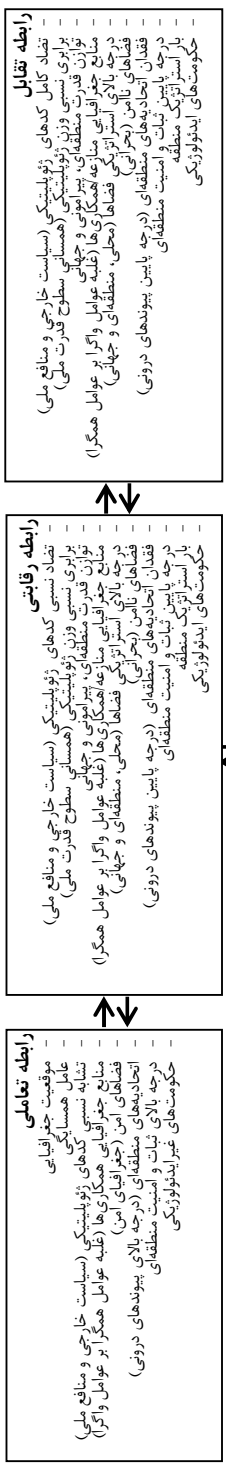 رابطه تقابل
- تضاد کامل کدهای ژئوپلیتیکی (سیاست خارجی و منافع ملی)
- برابری نسبی وزن ژئوپلیتیکی (همسانی سطوح قدرت ملی)
- توازن قدرت منطقه‌ای، پیرامونی و جهانی
- منابع جغرافیایی منازعه/همکاری‌ها (غلبه عوامل واگرا بر عوامل همگرا)
- درجه بالای استراتژیکی فضاها (محلی، منطقه‌ای و جهانی)
- فضاهای ناامن (بحرانی)
- فقدان اتحادیه‌های منطقه‌ای (درجه پایین پیوندهای درونی)
- درجه پایین ثبات و امنیت منطقه‌ای
- بار استراتژیک منطقه
- حکومت‌های ایدئولوژیکی
رابطه رقابتی
- تضاد نسبی کدهای ژئوپلیتیکی (سیاست خارجی و منافع ملی)
- برابری نسبی وزن ژئوپلیتیکی (همسانی سطوح قدرت ملی)
- توازن قدرت منطقه‌ای، پیرامونی و جهانی
- منابع جغرافیایی منازعه/همکاری‌ها (غلبه عوامل واگرا بر عوامل همگرا)
- درجه بالای استراتژیکی فضاها (محلی، منطقه‌ای و جهانی)
- فضاهای ناامن (بحرانی)
- فقدان اتحادیه‌های منطقه‌ای (درجه پایین پیوندهای درونی)
- درجه پایین ثبات و امنیت منطقه‌ای
- بار استراتژیک منطقه
- حکومت‌های ایدئولوژیکی
رابطه تعاملی
- موقعیت جغرافیایی
- عامل همسایگی
- تشابه نسبی کدهای ژئوپلیتیکی (سیاست خارجی و منافع ملی)
- منابع جغرافیایی همکاری‌ها (غلبه عوامل همگرا بر عوامل واگرا)
- فضاهای امن (جغرافیای امن)
- اتحادیه‌های منطقه‌ای (درجه بالای پیوندهای درونی)
- درجه بالای ثبات و امنیت منطقه‌ای
- حکومت‌های غیرایدئولوژیکی